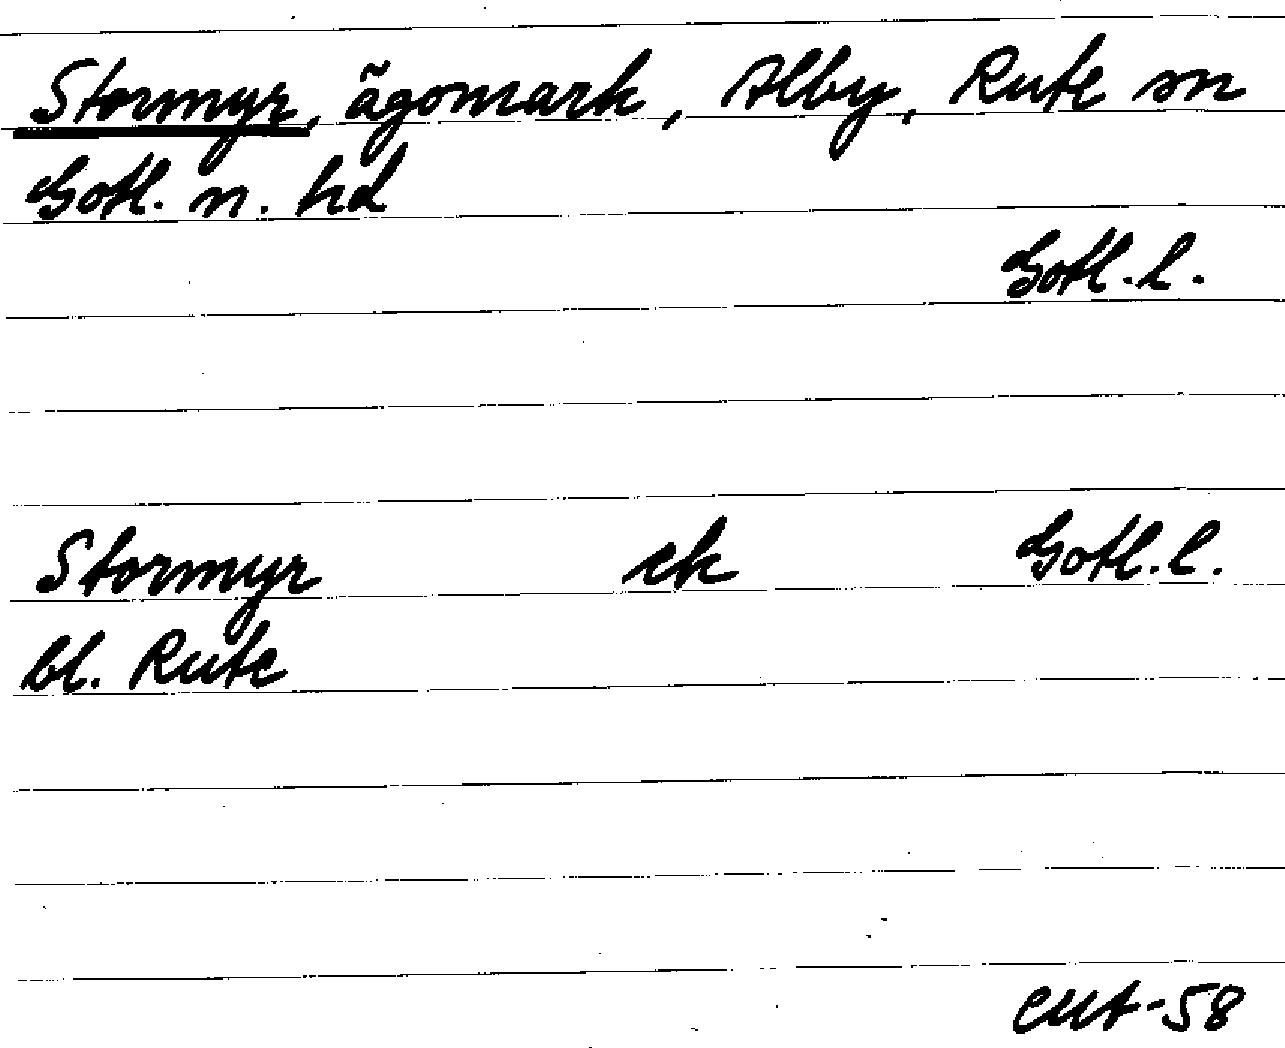 Stormyr, ägomark, Alby, Rute sn
Gotl. n. hd
Gotl. l.
Stormyr ek Gotl. l.
bl. Rute
-58